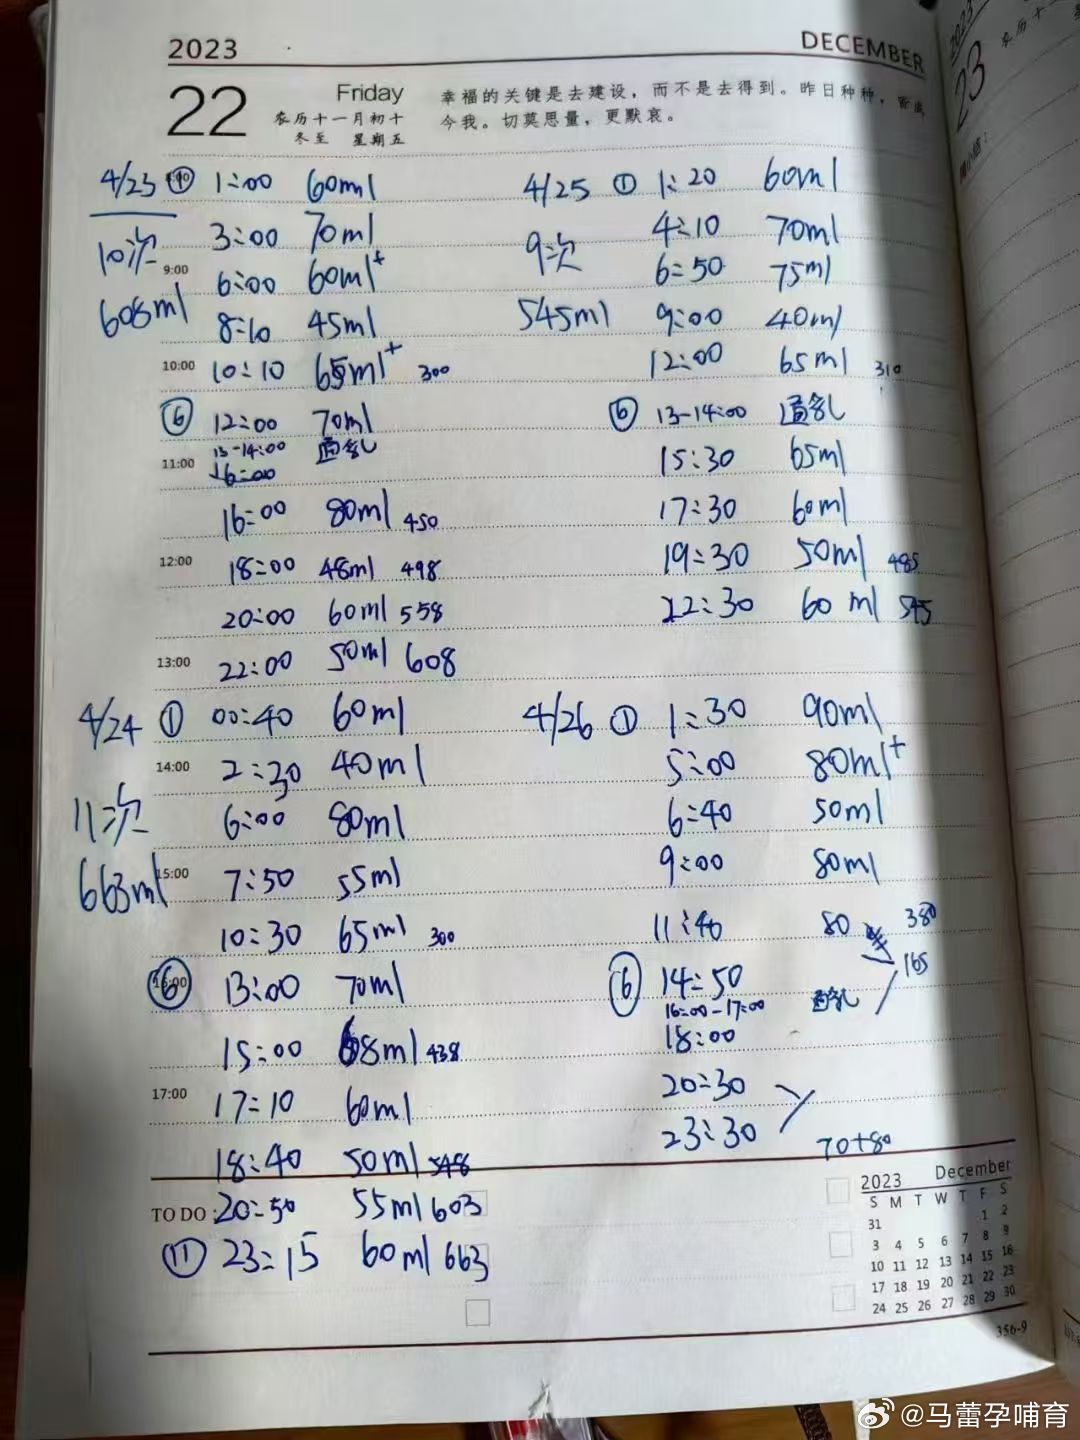 2023
DECEMBER
22
Friday
农历十一月初十
冬至 星期五
幸福的关键是去建设，而不是去得到。昨日种种，皆成
今我。切莫思量，更默哀。
4/23 ① 1:00 60ml
10次 3:00 70ml
9:00 6:00 60ml+
608ml 8:10 45ml
10:00 10:10 65ml+ 300
⑥ 12:00 70ml
13-14:00 通乳
11:00 16:00
16:00 80ml 450
12:00 18:00 48ml 498
20:00 60ml 558
13:00 22:00 50ml 608
4/24 ① 00:40 60ml
14:00 2:30 40ml
11次 6:00 80ml
663ml 15:00 7:50 55ml
10:30 65ml 300
⑥ 13:00 70ml
15:00 68ml 438
17:00 17:10 60ml
18:40 50ml 548
TO DO: 20:50 55ml 603
⑪ 23:15 60ml 663
4/25 ① 1:20 60ml
4:10 70ml
9次 6:50 75ml
545ml 9:00 40ml
12:00 65ml 310
⑥ 13-14:00 通乳
15:30 65ml
17:30 60ml
19:30 50ml 485
22:30 60ml 545
4/26 ① 1:30 90ml
5:00 80ml+
6:40 50ml
9:00 80ml
11:40 80 380
⑥ 14:50 165
16:00-17:00 通乳
18:00
20:30
23:30
70+80
2023 December
S M T W T F S
31 1 2
3 4 5 6 7 8 9
10 11 12 13 14 15 16
17 18 19 20 21 22 23
24 25 26 27 28 29 30
356-9
2023
23
农历十一
@马蕾孕哺育